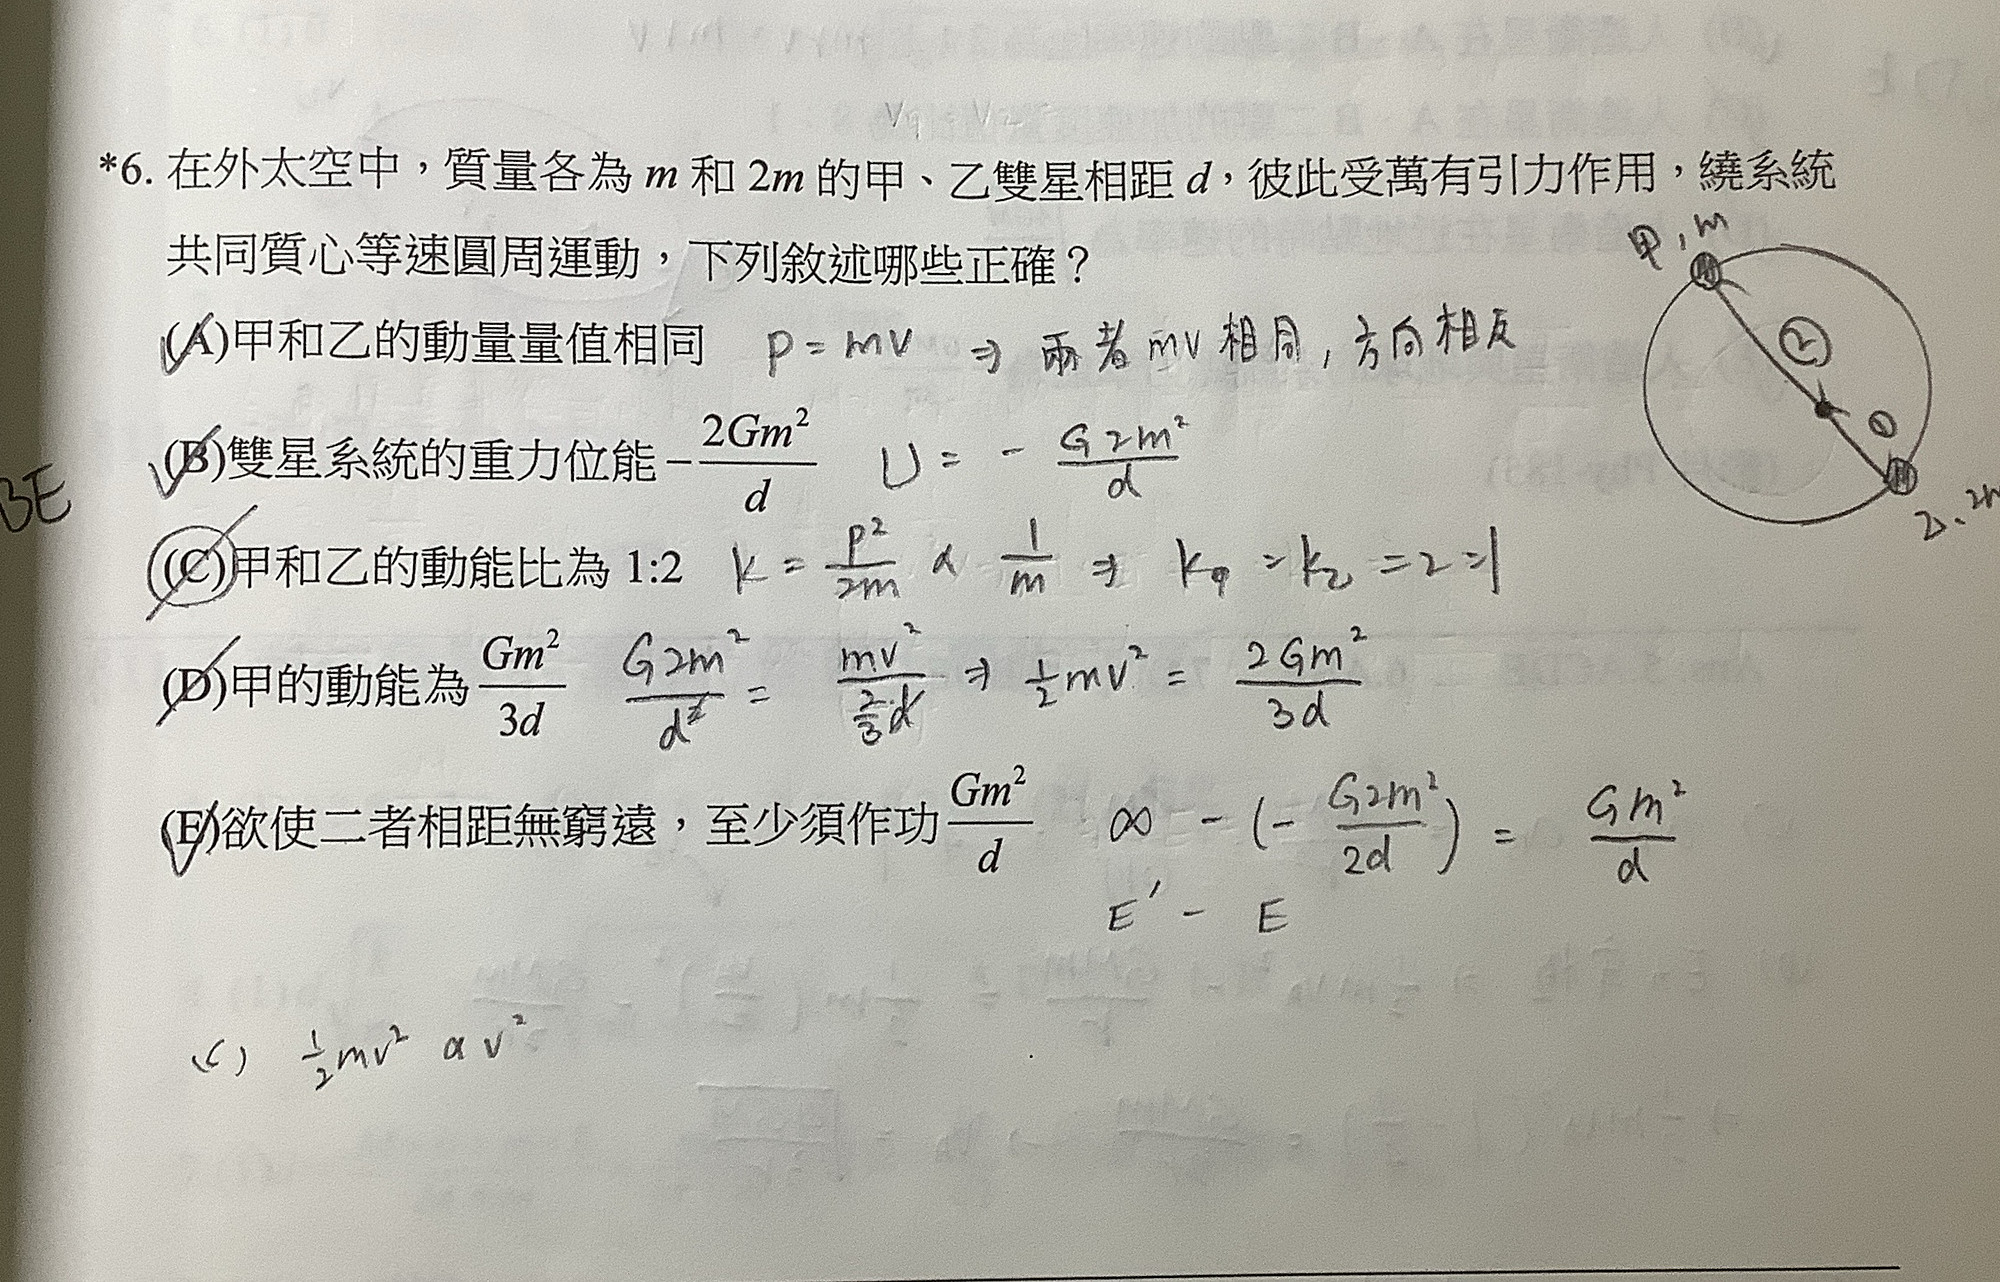 *6. 在外太空中，質量各為 m 和 2m 的甲、乙雙星相距 d，彼此受萬有引力作用，繞系統
共同質心等速圓周運動，下列敘述哪些正確？
甲, m
② ①
乙、2m
(A)甲和乙的動量量值相同 P = mv ⇒ 兩者 mv 相同, 方向相反
(B)雙星系統的重力位能 -2Gm²/d U = - G2m²/d
BE
(C)甲和乙的動能比為 1:2 k = P²/2m ∝ 1/m ⇒ k甲 : k乙 = 2 : 1
(D)甲的動能為 Gm²/3d G2m²/d² = mv²/(2/3 d) ⇒ 1/2 mv² = 2Gm²/3d
(E)欲使二者相距無窮遠，至少須作功 Gm²/d ∞ - (- G2m²/2d) = Gm²/d
E' - E
(C) 1/2 mv² ∝ v²